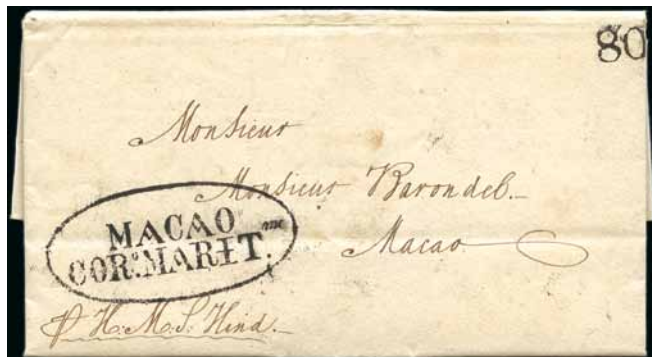 80
Monsieur
Monsieur Barondel.
Macao
MACAO
COR.º MARIT.mo
℘ H. M. S. Hind.